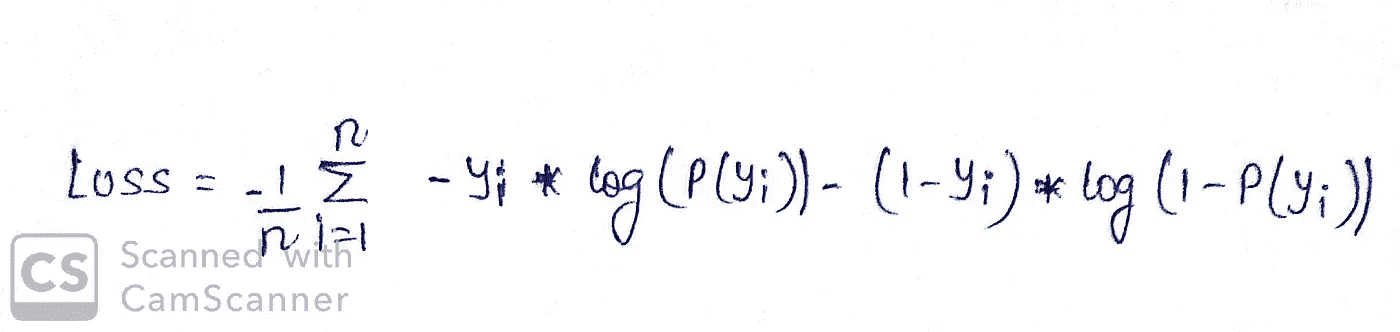 Loss = -1/n Σ i=1 n - yi * log(P(yi)) - (1-yi) * log(1-P(yi))
CS Scanned with
CamScanner